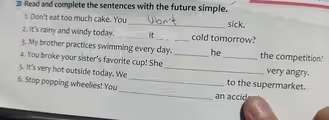 Read and complete the sentences with the future simple.
1. Don't eat too much cake. You Won't sick.
2. It's rainy and windy today. it cold tomorrow?
3. My brother practices swimming every day. he the competition!
4. You broke your sister's favorite cup! She very angry.
5. It's very hot outside today. We to the supermarket.
6. Stop popping wheelies! You an